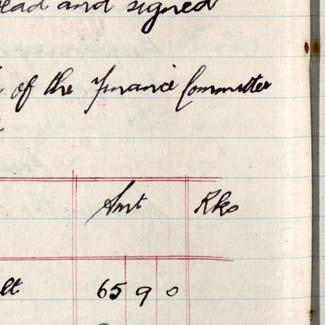 read and signed
of the Finance Committee
Amt Rks
lt 65 9 0